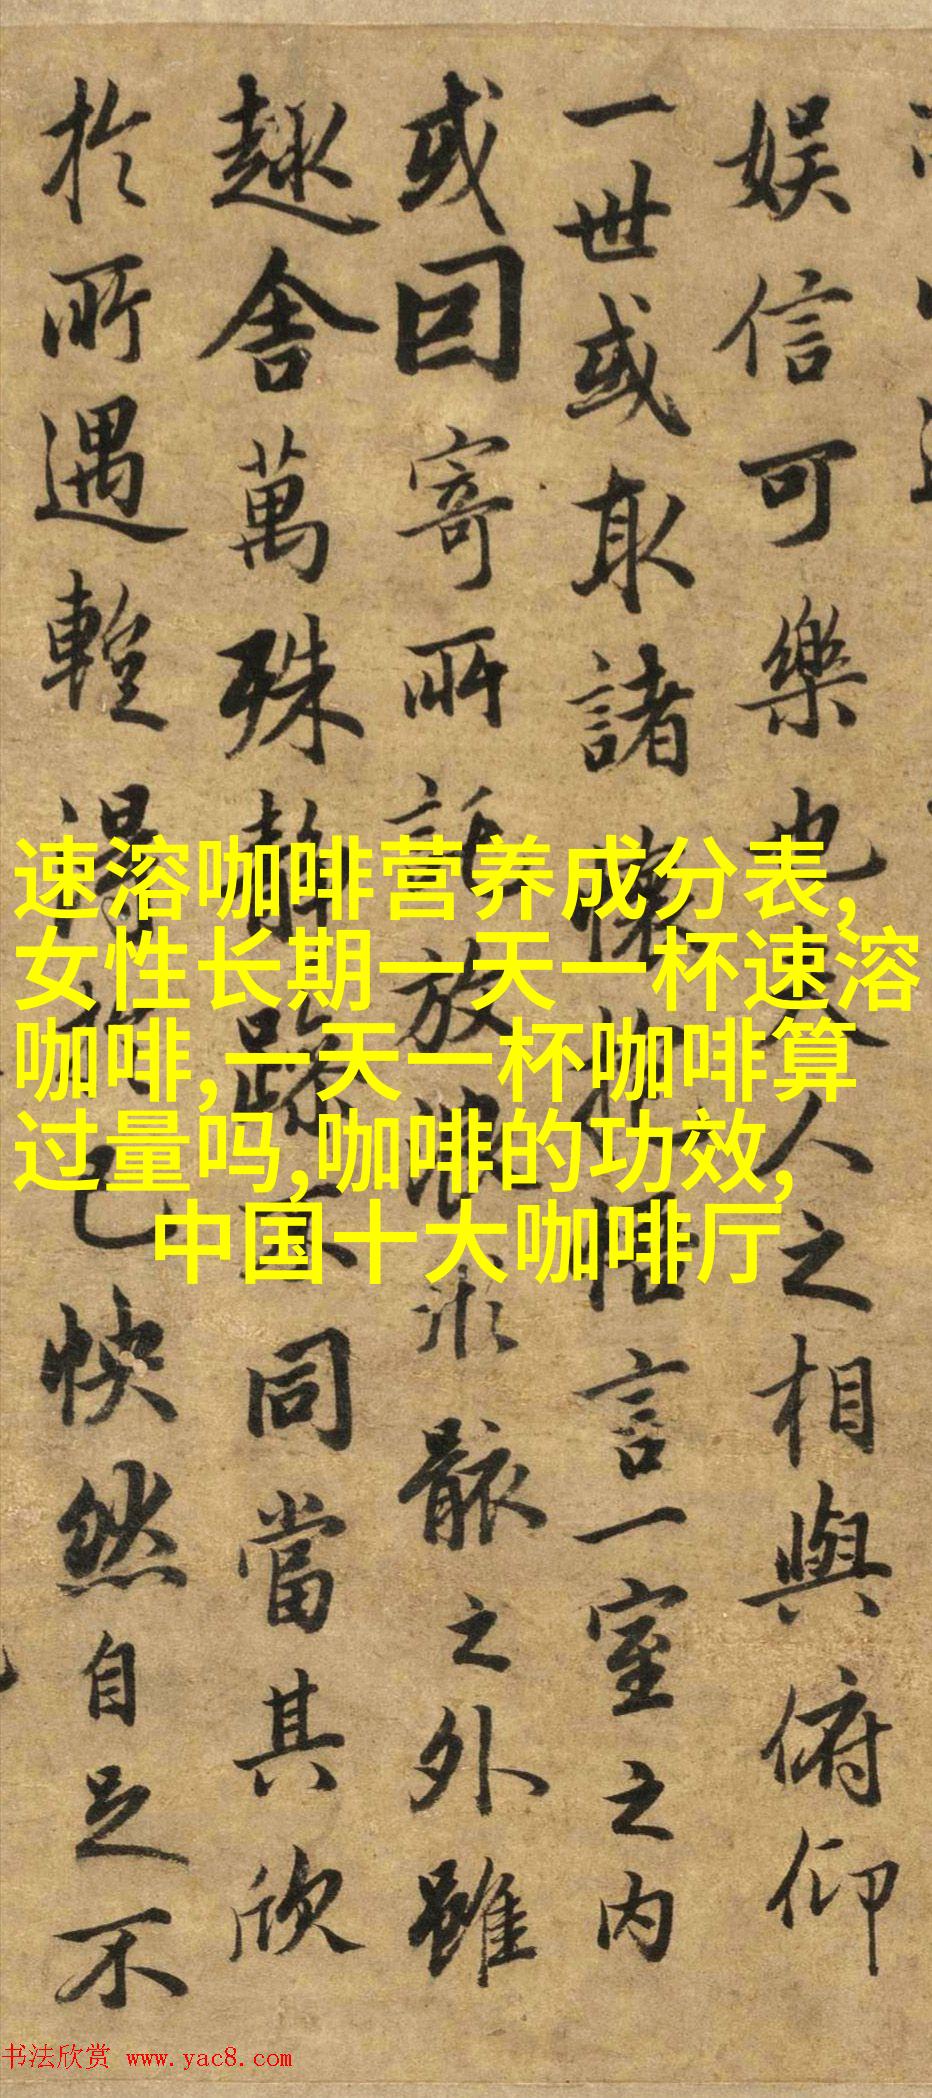 娱信可樂也夫人之相與俯仰
一世或取諸懷抱悟言一室之内
或因寄所託放浪形骸之外雖
趣舍萬殊静躁不同當其欣
於所遇得於己快然自足不
速溶咖啡营养成分表,
女性长期一天一杯速溶
咖啡,一天一杯咖啡算
过量吗,咖啡的功效,
中国十大咖啡厅
书法欣赏 www.yac8.com